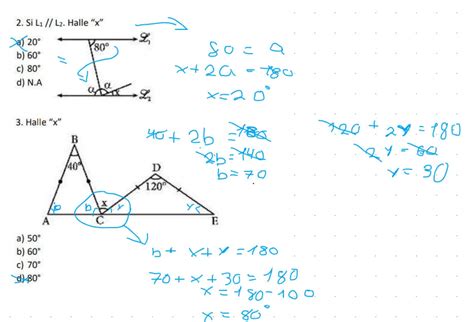 2. Si L₁ // L₂. Halle “x”
a) 20°
b) 60°
c) 80°
d) N.A
80°
α α x
ℒ₁
ℒ₂
80 = a
x + 2a = 180
x = 20°
3. Halle “x”
B
40°
D
120°
A
b
b x y
C
y
E
40 + 2b = 180
2b = 140
b = 70
120 + 2y = 180
2y = 60
y = 30
a) 50°
b) 60°
c) 70°
d) 80°
b + x + y = 180
70 + x + 30 = 180
x = 180 - 100
x = 80°